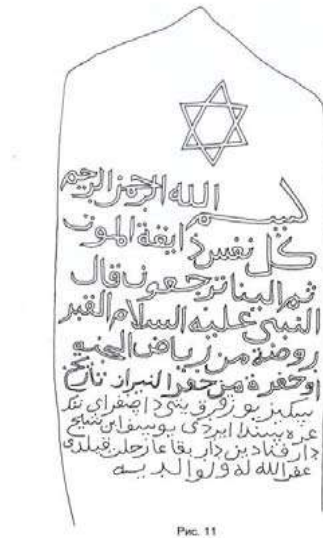 بسم الله الرحمن الرحيم
كل نفس ذايقة الموت
ثم الينا ترجعون قال
النبى عليه السلام القبر
روضة من رياض الجنة
او حفرة من حفر النيران تاريخ
يوز قرق يتى دا صفر اى نك
غره سيندا ايردى يوسف ابن شيخ
دار فنادين دار بقاغا رحلت قيلدى
غفر الله له ولوالديه
Рис. 11